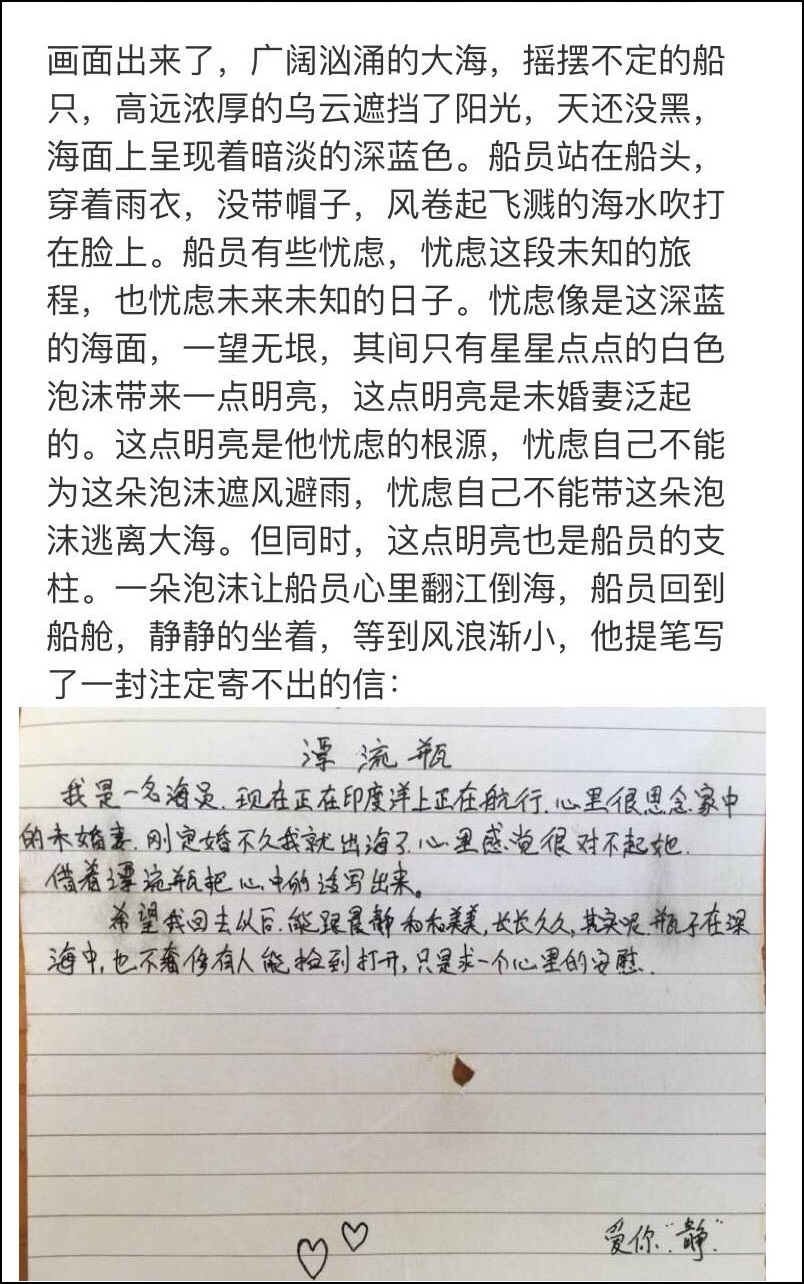 画面出来了，广阔汹涌的大海，摇摆不定的船
只，高远浓厚的乌云遮挡了阳光，天还没黑，
海面上呈现着暗淡的深蓝色。船员站在船头，
穿着雨衣，没带帽子，风卷起飞溅的海水吹打
在脸上。船员有些忧虑，忧虑这段未知的旅
程，也忧虑未来未知的日子。忧虑像是这深蓝
的海面，一望无垠，其间只有星星点点的白色
泡沫带来一点明亮，这点明亮是未婚妻泛起
的。这点明亮是他忧虑的根源，忧虑自己不能
为这朵泡沫遮风避雨，忧虑自己不能带这朵泡
沫逃离大海。但同时，这点明亮也是船员的支
柱。一朵泡沫让船员心里翻江倒海，船员回到
船舱，静静的坐着，等到风浪渐小，他提笔写
了一封注定寄不出的信：
漂流瓶
我是一名海员.现在正在印度洋上正在航行.心里很思念家中
的未婚妻.刚定婚不久我就出海了.心里感觉很对不起她.
借着漂流瓶把心中的话写出来。
希望我回去以后.能跟晨静和和美美,长长久久,其实呢.瓶子在深
海中,也不奢侈有人能捡到打开,只是求一个心里的安慰.
爱你"静"